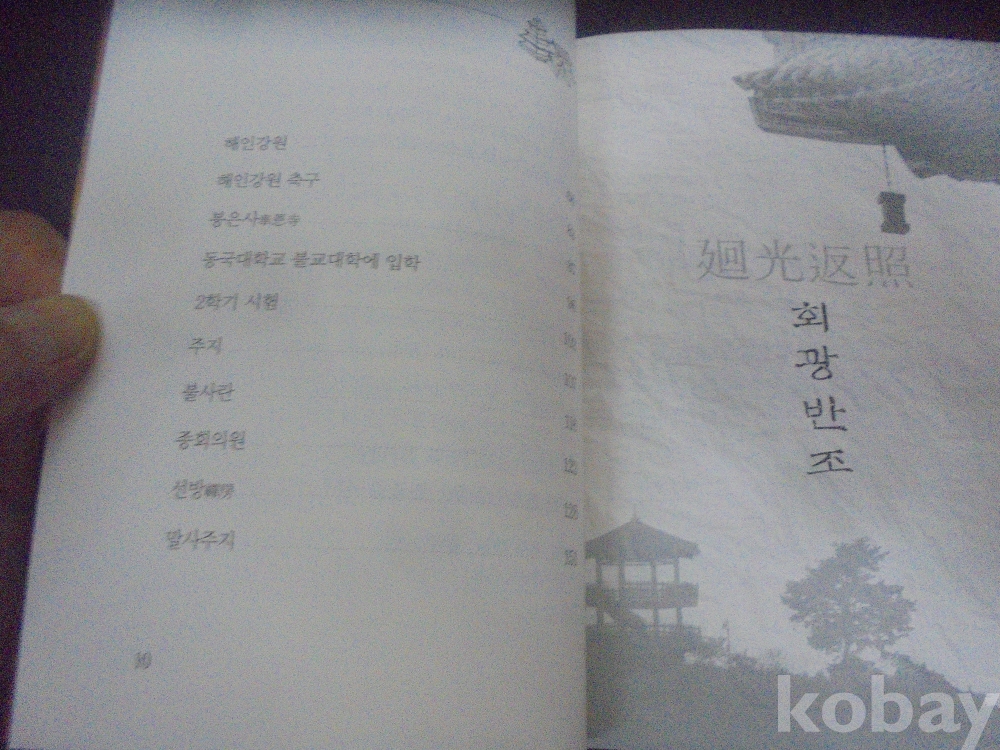 해인강원
해인강원 축구
봉은사奉恩寺
동국대학교 불교대학에 입학
2학기 시험
주지
불사란
종회의원
선방禪房
말사주지
10
廻光返照
회
광
반
조
kobay